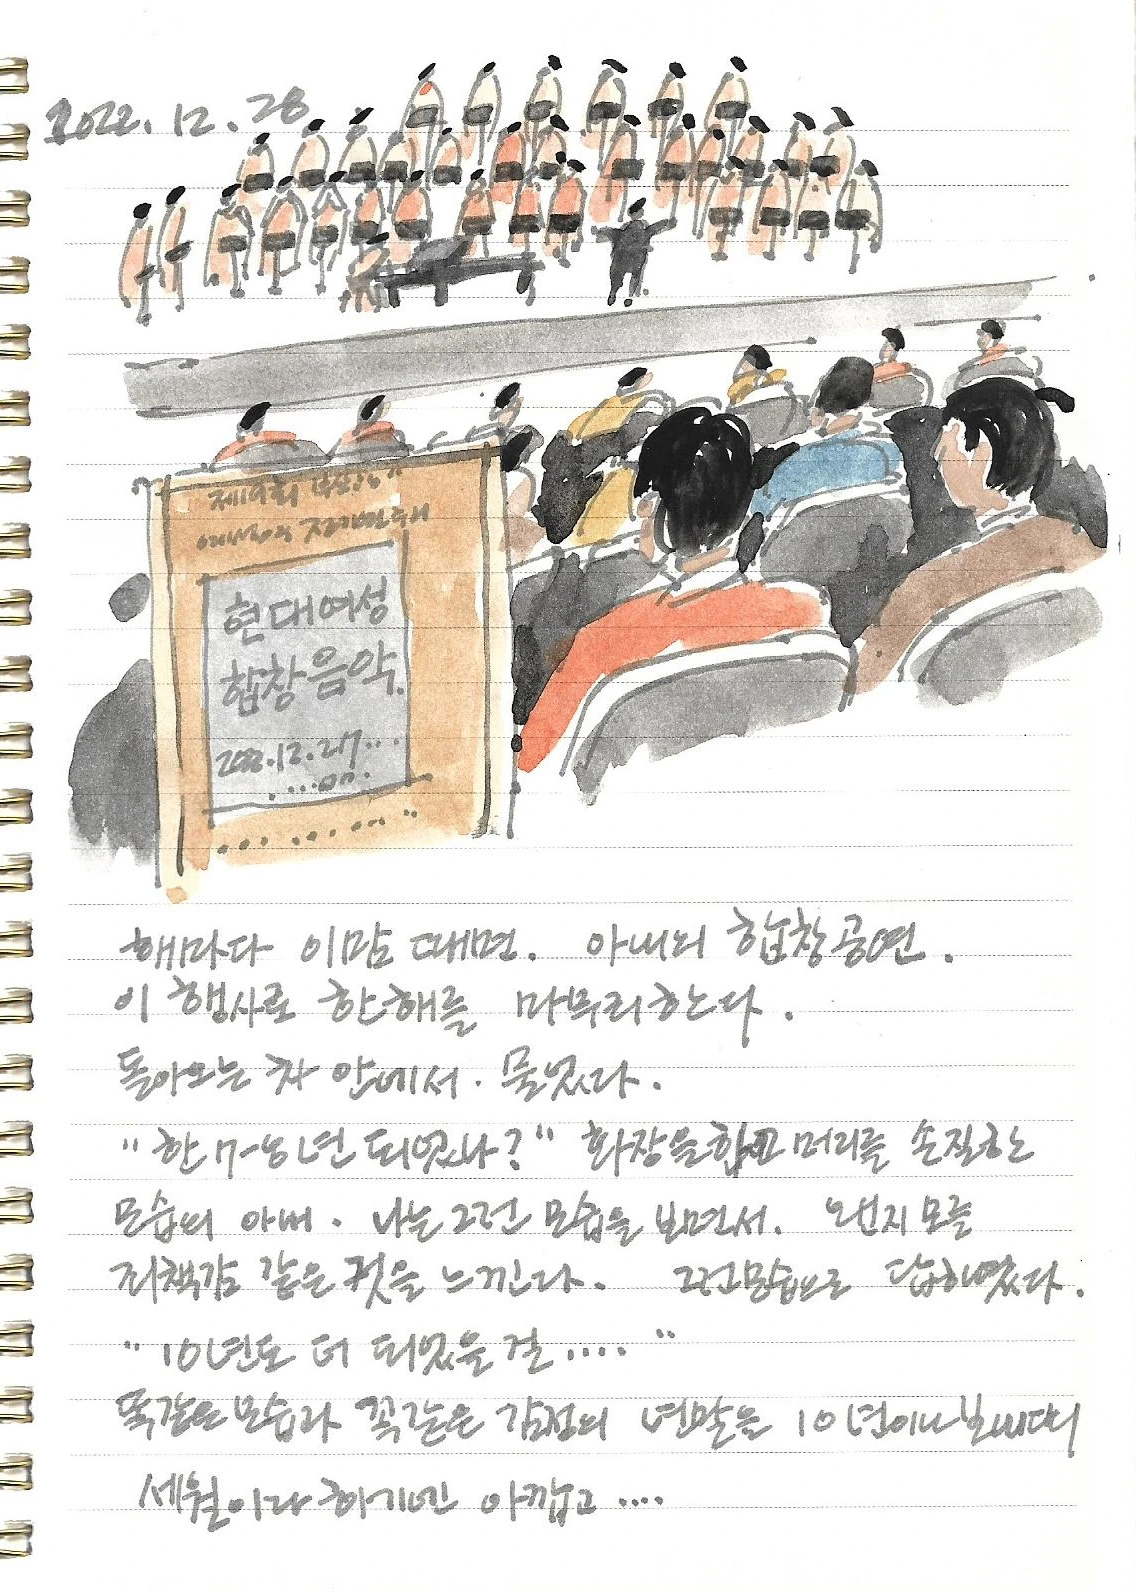 2022.12.28
제19회 부산
정기연주회
현대여성
합창음악.
2022.12.27...
해마다 이맘때면. 아내의 합창공연.
이 행사로 한해를 마무리한다.
돌아오는 차 안에서. 물었다.
"한 7~8년 되었나?" 화장을 하고 머리를 손질한
모습의 아내. 나는 그런 모습을 보면서. 왠지 모를
죄책감 같은 것을 느낀다. 그런 모습으로 답하였다.
"10년도 더 되었을 걸...."
똑같은 모습과 꼭같은 감정의 연말을 10년이나 보내다니
세월이라 하기엔 아깝고....